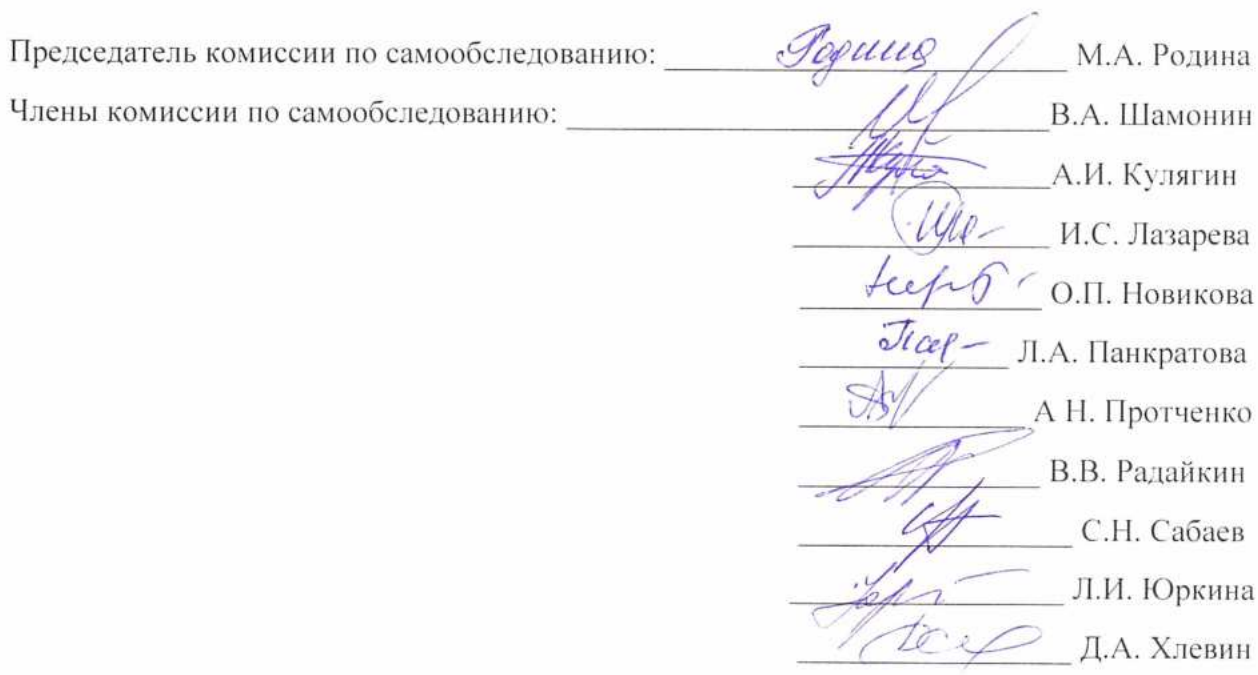 Председатель комиссии по самообследованию: Родина М.А. Родина
Члены комиссии по самообследованию: В.А. Шамонин
А.И. Кулягин
И.С. Лазарева
О.П. Новикова
Л.А. Панкратова
А Н. Протченко
В.В. Радайкин
С.Н. Сабаев
Л.И. Юркина
Д.А. Хлевин